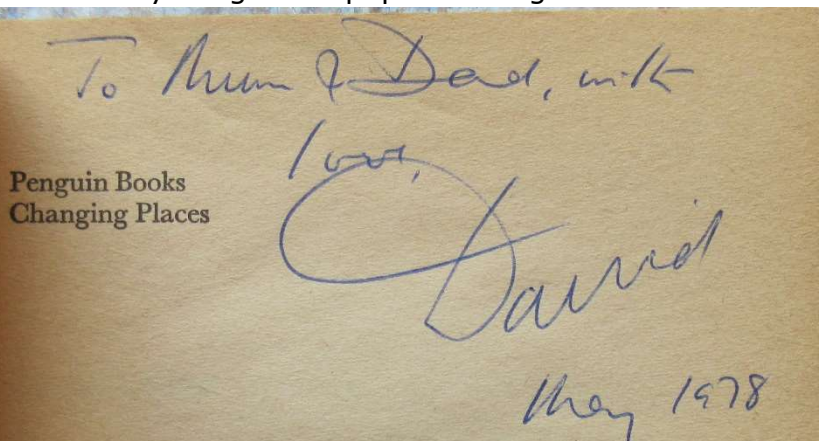 To Mum & Dad, with
love,
Penguin Books
Changing Places
David
May 1978